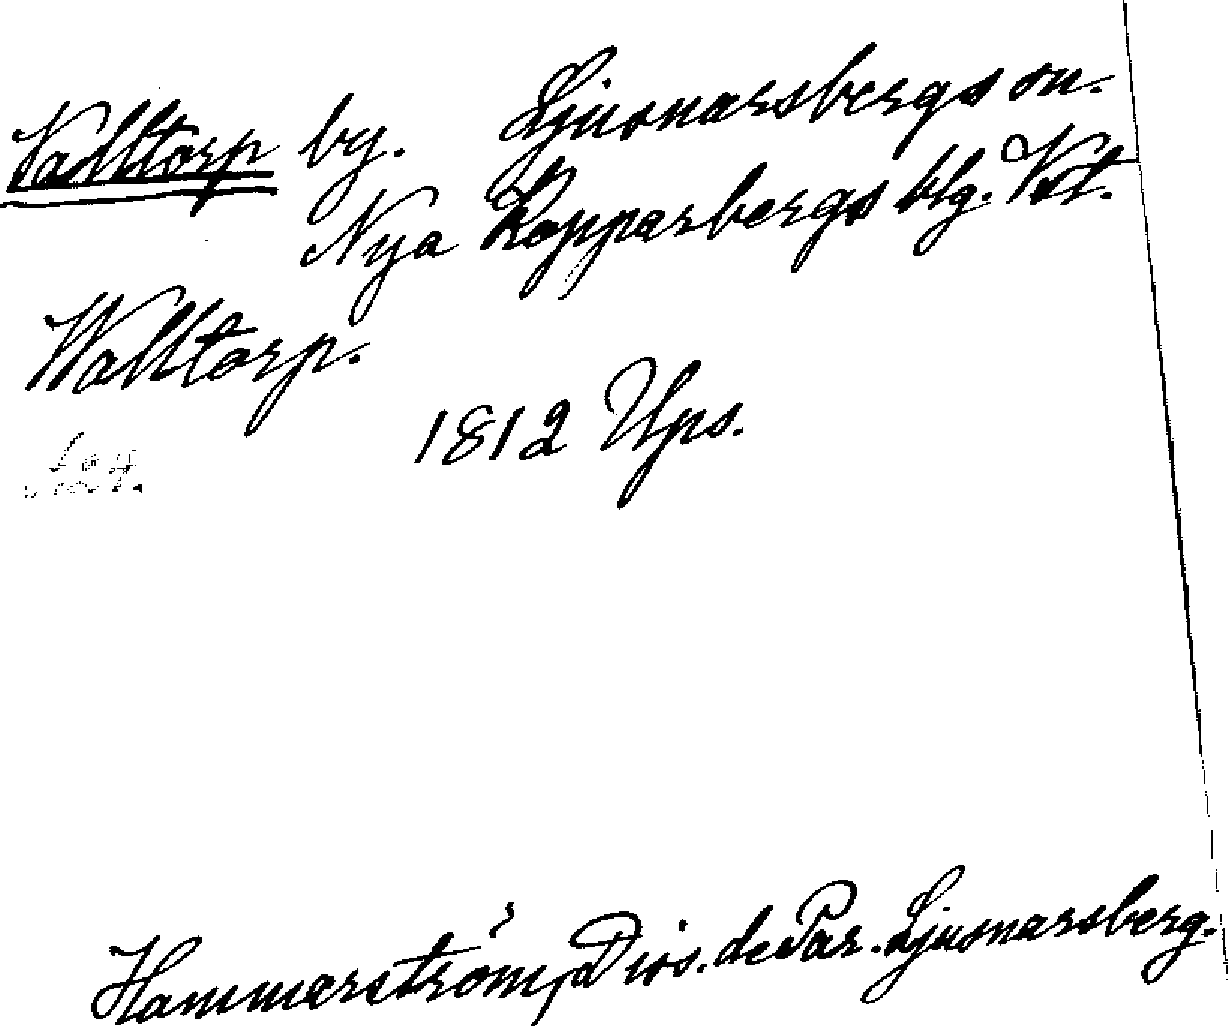 Valltorp by. Ljusnarsbergs sn.
Nya Kopparbergs blg. Vstm.
Walltorp.
1812 Ups.
Hammarström, Diss. de Par. Ljusnarsberg.